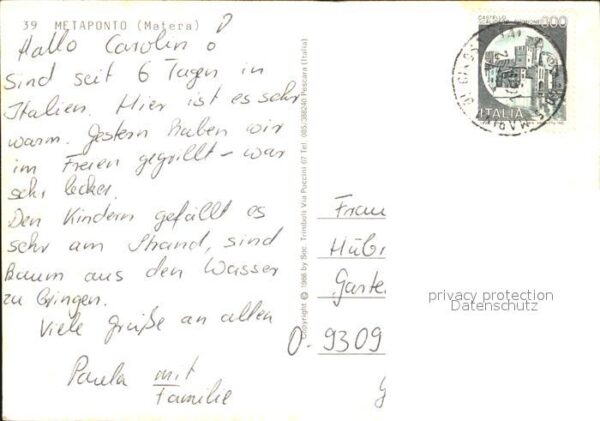 39 METAPONTO (Matera)
Hallo Carolin!
Sind seit 6 Tagen in
Italien. Hier ist es sehr
warm. Gestern haben wir
im Freien gegrillt - war
sehr lecker.
Den Kindern gefällt es
sehr am Strand, sind
kaum aus den Wasser
zu bringen.
Viele grüße an allen
Paula mit
Familie
Copyright © 1986 by Soc. Trimboli Via Puccini 67 Tel. (085) 388240 Pescara (Italia)
CASTELLO
300
ITALIA
Frau
Hübn
Garte
privacy protection
Datenschutz
O-9309